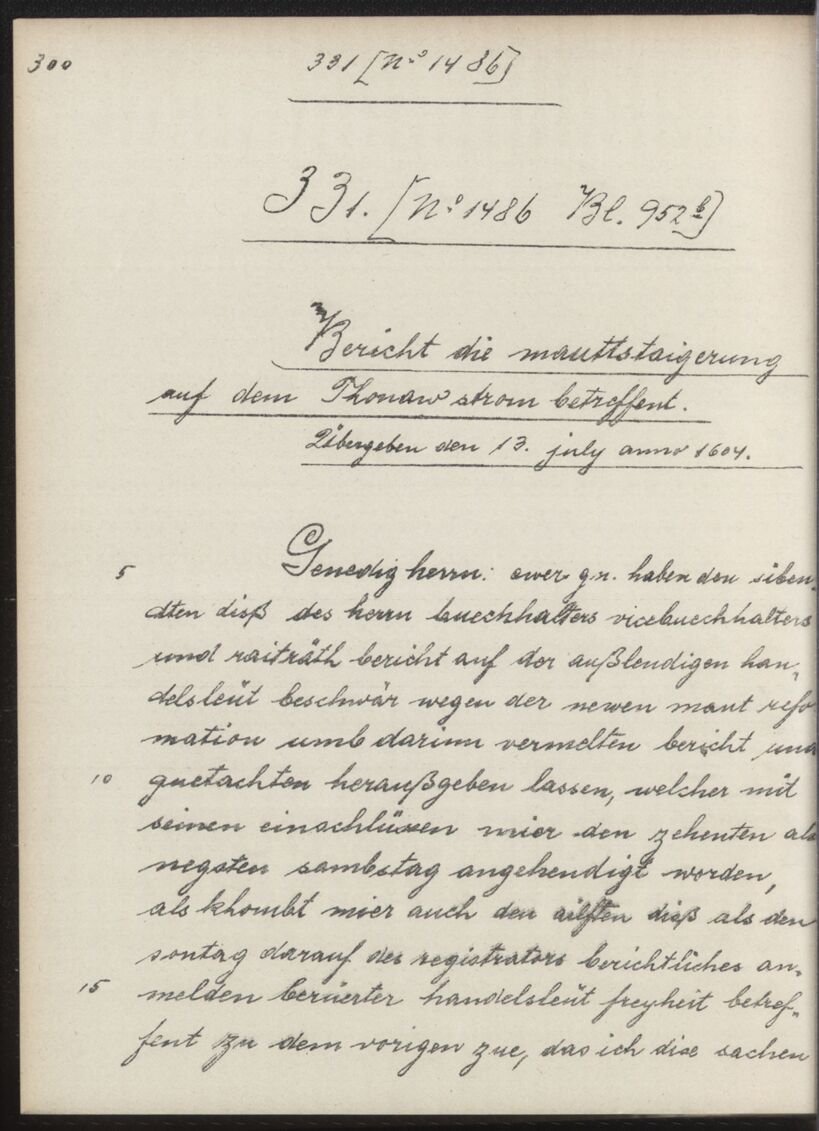 300
331 [No 1486]
331. [No 1486 Bl. 952b]
Bericht die mauttstaigerung
auf dem Thonaw strom betreffent.
Übergeben den 13. july anno 1604.
5 Genedig herrn: ewer gn. haben den siben-
dten diß des herrn buechhalters vicebuechhalters
und raiträth bericht auf der außlendigen han-
delsleüt beschwär wegen der newen maut refor
mation umb darinn vermelten bericht und
10 guetachten heraußgeben lassen, welcher mit
seinen einschlüssen mier den zehenten als
negsten sambstag angehendigt worden,
als khombt mier auch den ailften diß als den
sontag darauf des registrators berichtliches an-
15 melden berüerter handelsleüt freyheit betref-
fent zu dem vorigen zue, das ich dise sachen